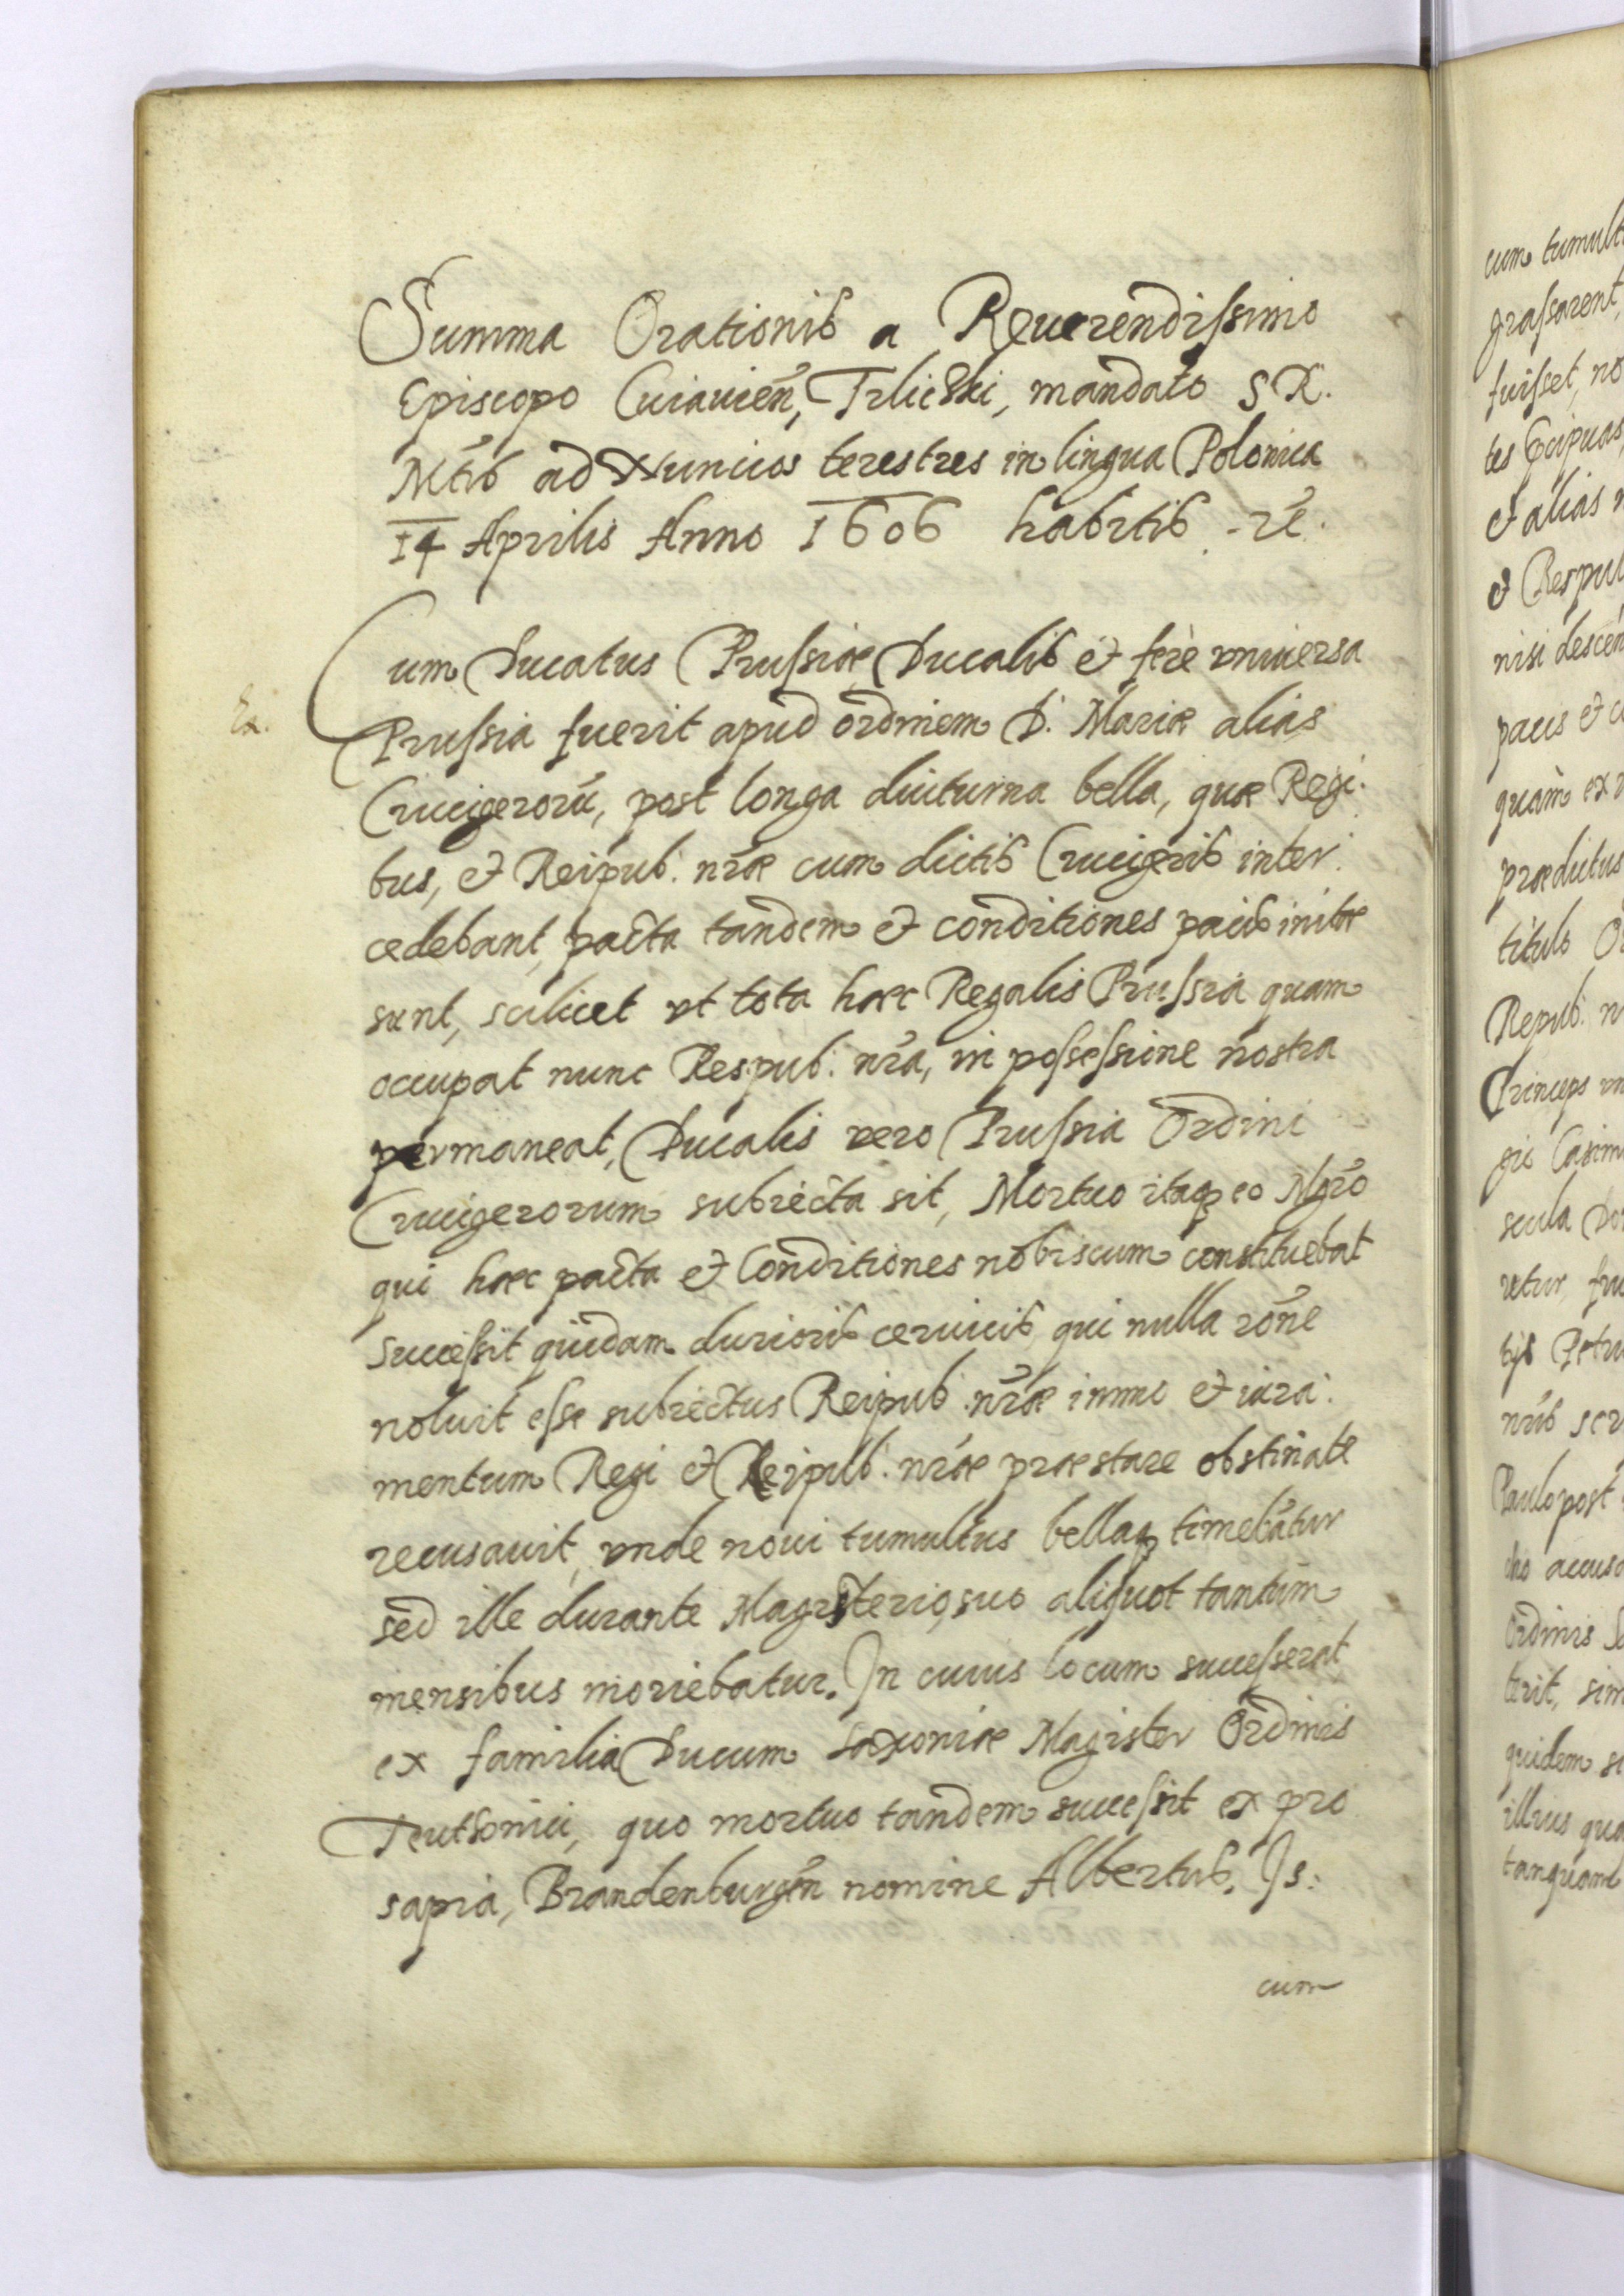 Summa Orationis a Reuerendissimo
Episcopo Cuiauien̄, Trlicski, mandato S R.
Mtis ad Nuncios terestres in lingua Polonica
14 Aprilis Anno 1606 habitis
Cum Ducatus Prussiæ Ducalis et ferè vniuersa
Ex.
Prussia fuerit apud ordinem D. Mariæ alias
Crucigerorū, post longa diuturna bella, quæ Regi:
bus, et Reipub: nr̄æ cum dictis Crucigeris inter:
cedebant, pacta tandem et conditiones pacis initæ
sunt, scilicet vt tota hæc Regalis Prussia quam
occupat nunc Respub: nr̄a, in possessione nostra
permaneat, Ducalis vero Prussia Ordini
Crucigerorum subiecta sit, Mortuo itaq̨ eo Mgrō
qui hæc pacta et Conditiones nobiscum constituebat
successit quidam durioris ceruicis qui nulla rōne
noluit esse subiectus Reipub: nr̄æ immo et iura:
mentum Regi et Reipub: nr̄æ præstare obstinate
recusauit, vnde noui tumultus bellaq̨ timebātur
sed ille durante Magisterio suo aliquot tantum
mensibus moriebatur. In cuius locum successerat
ex familia Ducum Saxoniæ Magister Ordinis
Teutonici, quo mortuo tandem successit ex pro
sapia, Brandenburgēn nomine Albertus. Is:
cum
cum tumult
grassarent,
fuisset, no
et alias
et Respu
nisi descen
pacis et c
quàm ex
prædictus
titulo O
Repub: n
Princeps vn
gis Casim
secula
tys Petri
nris ser
Paulo post
cho accus
Ordinis
terit, sim
quidem s
illius qua
tanquam